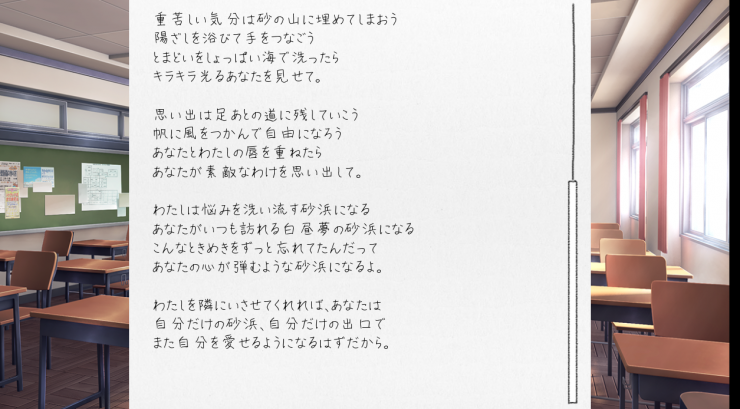 重苦しい気分は砂の山に埋めてしまおう
陽ざしを浴びて手をつなごう
とまどいをしょっぱい海で洗ったら
キラキラ光るあなたを見せて。
思い出は足あとの道に残していこう
帆に風をつかんで自由になろう
あなたとわたしの唇を重ねたら
あなたが素敵なわけを思い出して。
わたしは悩みを洗い流す砂浜になる
あなたがいつも訪れる白昼夢の砂浜になる
こんなときめきをずっと忘れてたんだって
あなたの心が弾むような砂浜になるよ。
わたしを隣にいさせてくれれば、あなたは
自分だけの砂浜、自分だけの出口で
また自分を愛せるようになるはずだから。